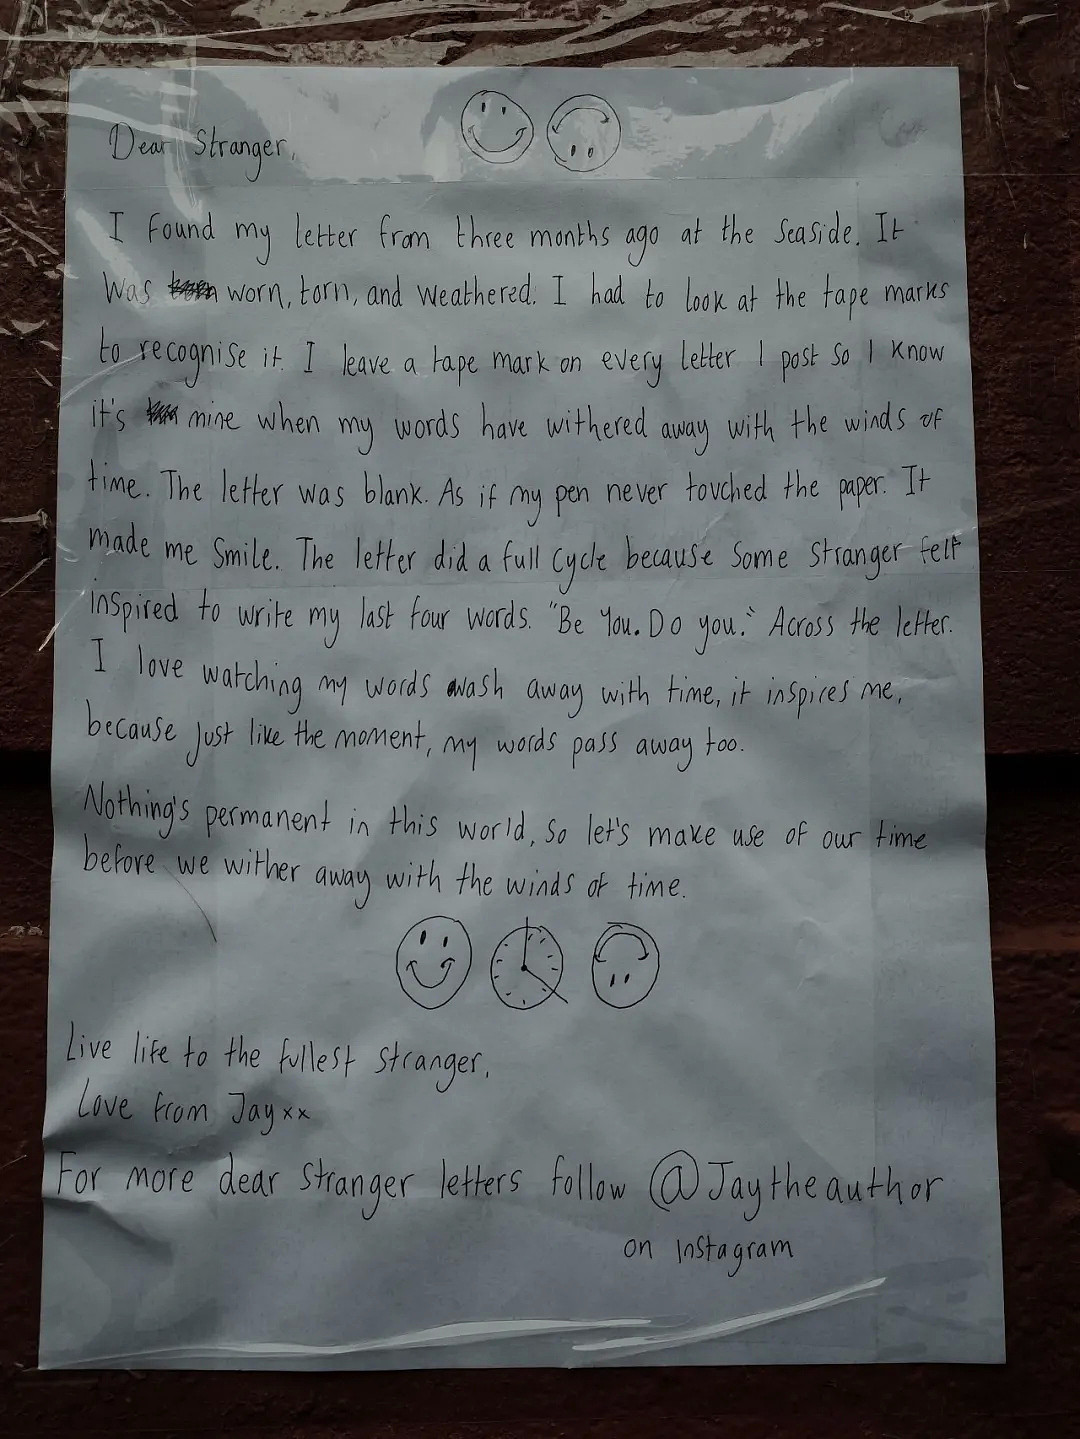 Dear Stranger,
I found my letter from three months ago at the seaside. It
was worn, torn, and weathered. I had to look at the tape marks
to recognise it. I leave a tape mark on every letter I post so I know
it's mine when my words have withered away with the winds of
time. The letter was blank. As if my pen never touched the paper. It
made me smile. The letter did a full cycle because some stranger felt
inspired to write my last four words. "Be You. Do you." Across the letter.
I love watching my words wash away with time, it inspires me,
because just like the moment, my words pass away too.
Nothing's permanent in this world, so let's make use of our time
before we wither away with the winds of time.
Live life to the fullest stranger,
Love from Jay xx
For more dear stranger letters follow @Jaytheauthor
on instagram